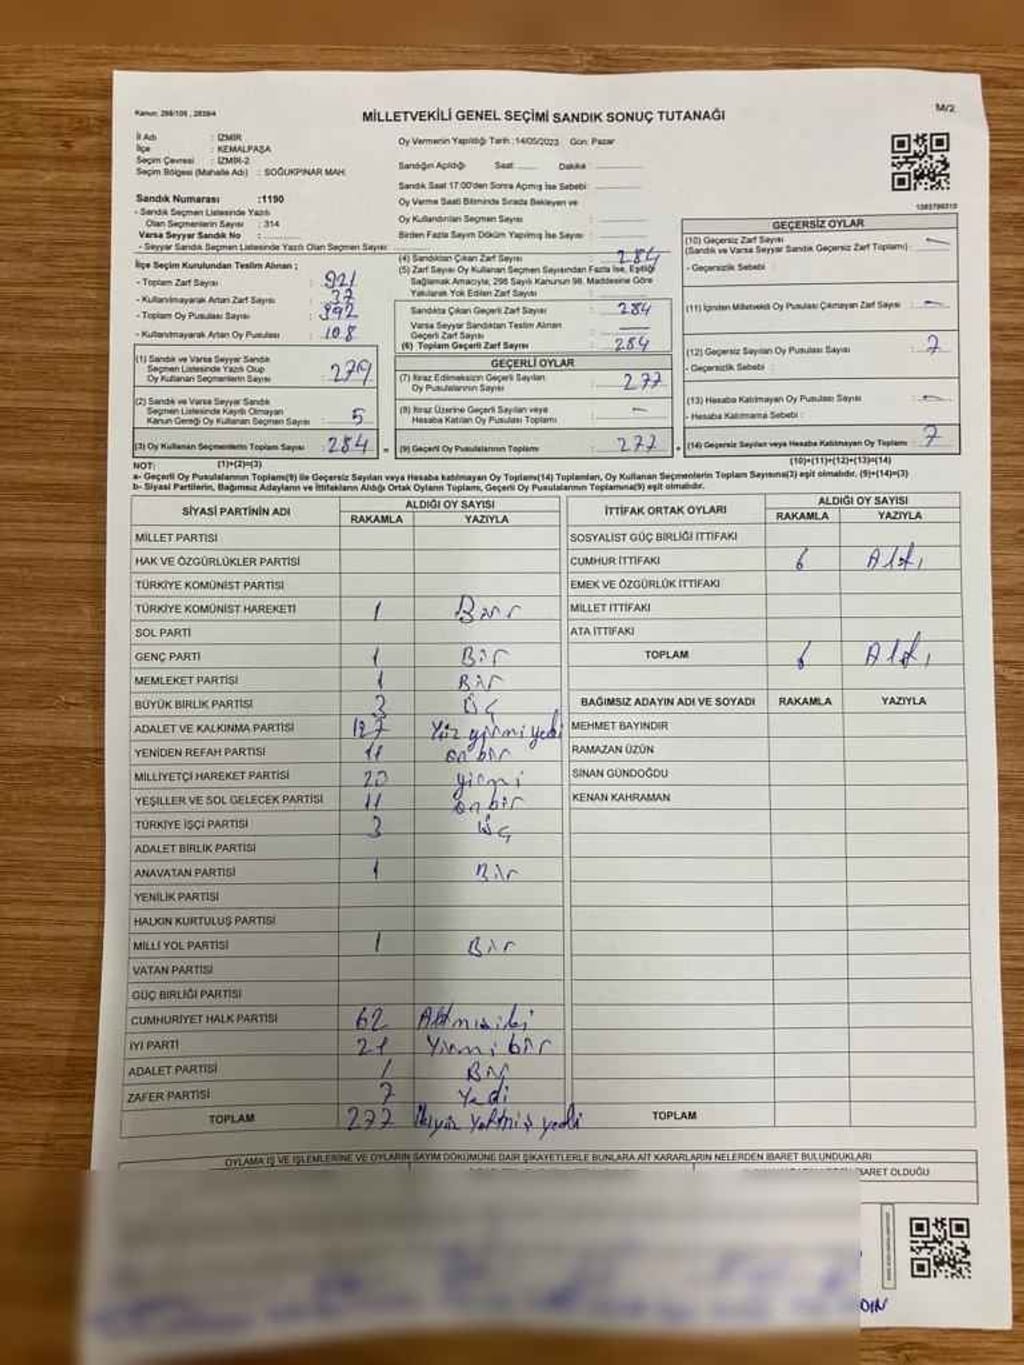 Kanun: 298/105 , 2839/4
MİLLETVEKİLİ GENEL SEÇİMİ SANDIK SONUÇ TUTANAĞI
M/2
İl Adı : İZMİR
İlçe : KEMALPAŞA
Seçim Çevresi : İZMİR-2
Seçim Bölgesi (Mahalle Adı) : SOĞUKPINAR MAH.
Oy Vermenin Yapıldığı Tarih : 14/05/2023 Gün: Pazar
Sandığın Açıldığı Saat: ...... Dakika : ..............
Sandık Saat 17:00'den Sonra Açılmış İse Sebebi: ..............
Oy Verme Saati Bitiminde Sırada Bekleyen ve
Oy Kullandırılan Seçmen Sayısı : ..............
Birden Fazla Sayım Döküm Yapılmış İse Sayısı : ..............
Sandık Numarası :1190
- Sandık Seçmen Listesinde Yazılı
Olan Seçmenlerin Sayısı : 314
Varsa Seyyar Sandık No : ..............
- Seyyar Sandık Seçmen Listesinde Yazılı Olan Seçmen Sayısı: ..............
İlçe Seçim Kurulundan Teslim Alınan ;
- Toplam Zarf Sayısı : 921
- Kullanılmayarak Artan Zarf Sayısı : 37
- Toplam Oy Pusulası Sayısı : 392
- Kullanılmayarak Artan Oy Pusulası : 108
(4) Sandıktan Çıkan Zarf Sayısı : 284
(5) Zarf Sayısı Oy Kullanan Seçmen Sayısından Fazla İse, Eşitliği
Sağlamak Amacıyle, 298 Sayılı Kanunun 98. Maddesine Göre
Yakılarak Yok Edilen Zarf Sayısı :
Sandıkta Çıkan Geçerli Zarf Sayısı : 284
Varsa Seyyar Sandıktan Teslim Alınan
Geçerli Zarf Sayısı :
(6) Toplam Geçerli Zarf Sayısı : 284
(1) Sandık ve Varsa Seyyar Sandık
Seçmen Listesinde Yazılı Olup
Oy Kullanan Seçmenlerin Sayısı : 279
(2) Sandık ve Varsa Seyyar Sandık
Seçmen Listesinde Kayıtlı Olmayan
Kanun Gereği Oy Kullanan Seçmen Sayısı : 5
(3) Oy Kullanan Seçmenlerin Toplam Sayısı : 284
=
GEÇERLİ OYLAR
(7) İtiraz Edilmeksizin Geçerli Sayılan
Oy Pusulalarının Sayısı : 277
(8) İtiraz Üzerine Geçerli Sayılan veya
Hesaba Katılan Oy Pusulası Toplamı : —
(9) Geçerli Oy Pusulalarının Toplamı : 277
+
GEÇERSİZ OYLAR
(10) Geçersiz Zarf Sayısı
(Sandık ve Varsa Seyyar Sandık Geçersiz Zarf Toplamı) : —
- Geçersizlik Sebebi :
(11) İçinden Milletvekili Oy Pusulası Çıkmayan Zarf Sayısı : —
(12) Geçersiz Sayılan Oy Pusulası Sayısı : 7
- Geçersizlik Sebebi :
(13) Hesaba Katılmayan Oy Pusulası Sayısı : —
- Hesaba Katılmama Sebebi :
(14) Geçersiz Sayılan veya Hesaba Katılmayan Oy Toplamı : 7
NOT: (1)+(2)=(3)
(10)+(11)+(12)+(13)=(14)
a- Geçerli Oy Pusulalarının Toplamı(9) ile Geçersiz Sayılan veya Hesaba katılmayan Oy Toplamı(14) Toplamları, Oy Kullanan Seçmenlerin Toplam Sayısına(3) eşit olmalıdır. (9)+(14)=(3)
b- Siyasi Partilerin, Bağımsız Adayların ve İttifakların Aldığı Ortak Oyların Toplamı, Geçerli Oy Pusulalarının Toplamına(9) eşit olmalıdır.
SİYASİ PARTİNİN ADI ALDIĞI OY SAYISI
RAKAMLA YAZIYLA
MİLLET PARTİSİ
HAK VE ÖZGÜRLÜKLER PARTİSİ
TÜRKİYE KOMÜNİST PARTİSİ
TÜRKİYE KOMÜNİST HAREKETİ 1 Bir
SOL PARTİ
GENÇ PARTİ 1 Bir
MEMLEKET PARTİSİ 1 Bir
BÜYÜK BİRLİK PARTİSİ 3 Üç
ADALET VE KALKINMA PARTİSİ 127 Yüz yirmi yedi
YENİDEN REFAH PARTİSİ 11 on bir
MİLLİYETÇİ HAREKET PARTİSİ 20 yirmi
YEŞİLLER VE SOL GELECEK PARTİSİ 11 on bir
TÜRKİYE İŞÇİ PARTİSİ 3 Üç
ADALET BİRLİK PARTİSİ
ANAVATAN PARTİSİ 1 Bir
YENİLİK PARTİSİ
HALKIN KURTULUŞ PARTİSİ
MİLLİ YOL PARTİSİ 1 Bir
VATAN PARTİSİ
GÜÇ BİRLİĞİ PARTİSİ
CUMHURİYET HALK PARTİSİ 62 Altmış iki
İYİ PARTİ 21 Yirmi bir
ADALET PARTİSİ 1 Bir
ZAFER PARTİSİ 7 Yedi
TOPLAM 277 İkiyüz yetmiş yedi
İTTİFAK ORTAK OYLARI ALDIĞI OY SAYISI
RAKAMLA YAZIYLA
SOSYALİST GÜÇ BİRLİĞİ İTTİFAKI
CUMHUR İTTİFAKI 6 Altı
EMEK VE ÖZGÜRLÜK İTTİFAKI
MİLLET İTTİFAKI
ATA İTTİFAKI
TOPLAM 6 Altı
BAĞIMSIZ ADAYIN ADI VE SOYADI RAKAMLA YAZIYLA
MEHMET BAYINDIR
RAMAZAN ÜZÜN
SİNAN GÜNDOĞDU
KENAN KAHRAMAN
TOPLAM
OYLAMA İŞ VE İŞLEMLERİNE VE OYLARIN SAYIM DÖKÜMÜNE DAİR ŞİKAYETLERLE BUNLARA AİT KARARLARIN NELERDEN İBARET BULUNDUKLARI
İBARET OLDUĞU